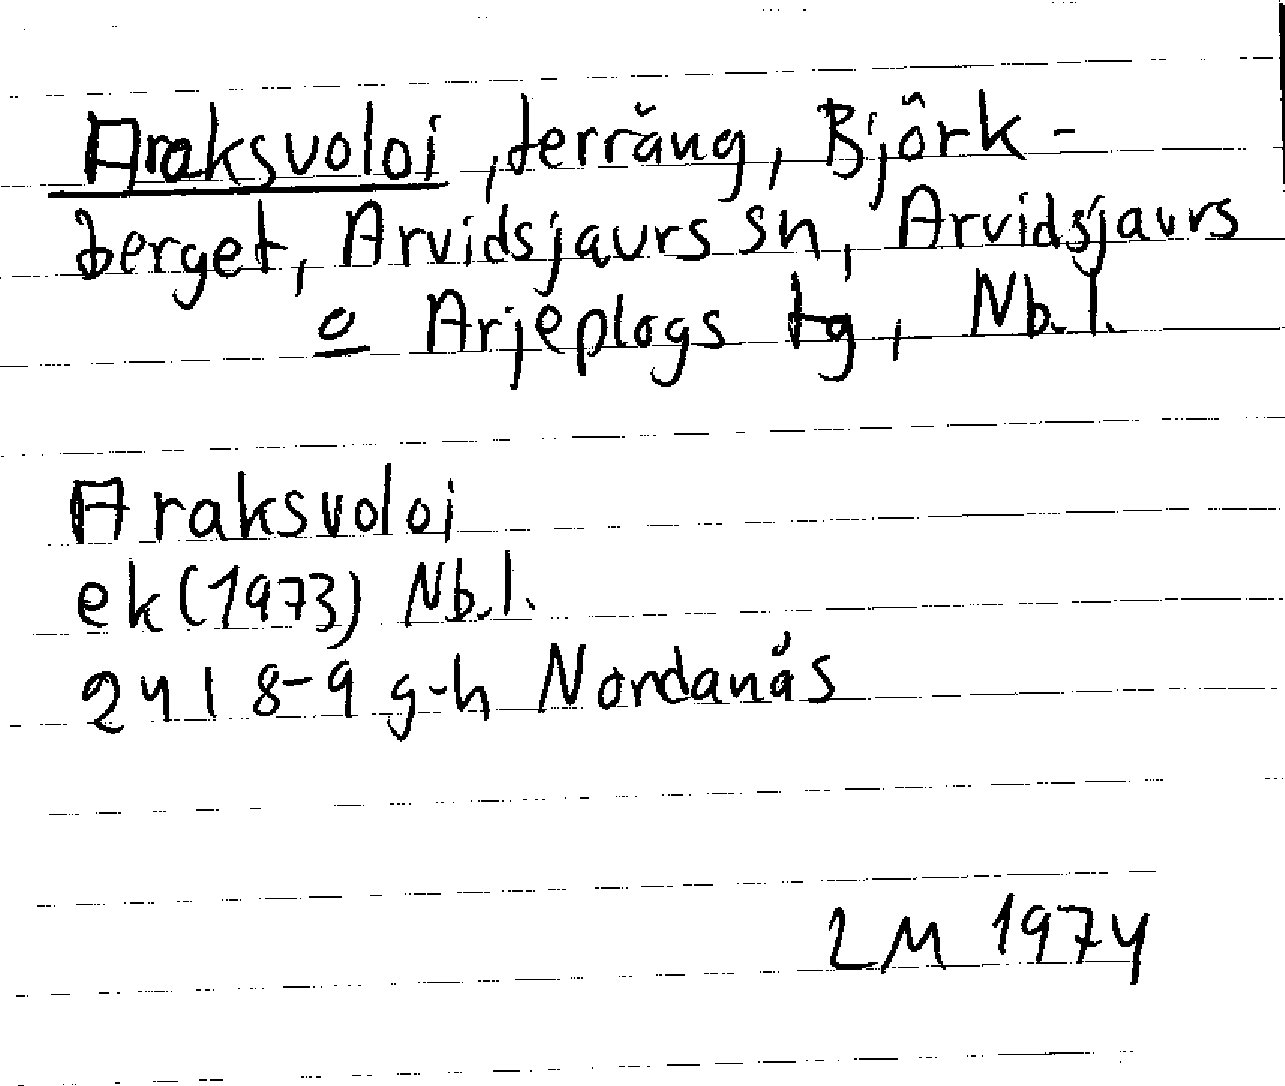 Araksvoloi, terräng, Björk-
berget, Arvidsjaurs sn, Arvidsjaurs
o Arjeplogs tg, Nb.l.
Araksvoloi
ek (1973) Nb.l.
24I 8-9 g-h Nordanås
LM 1974